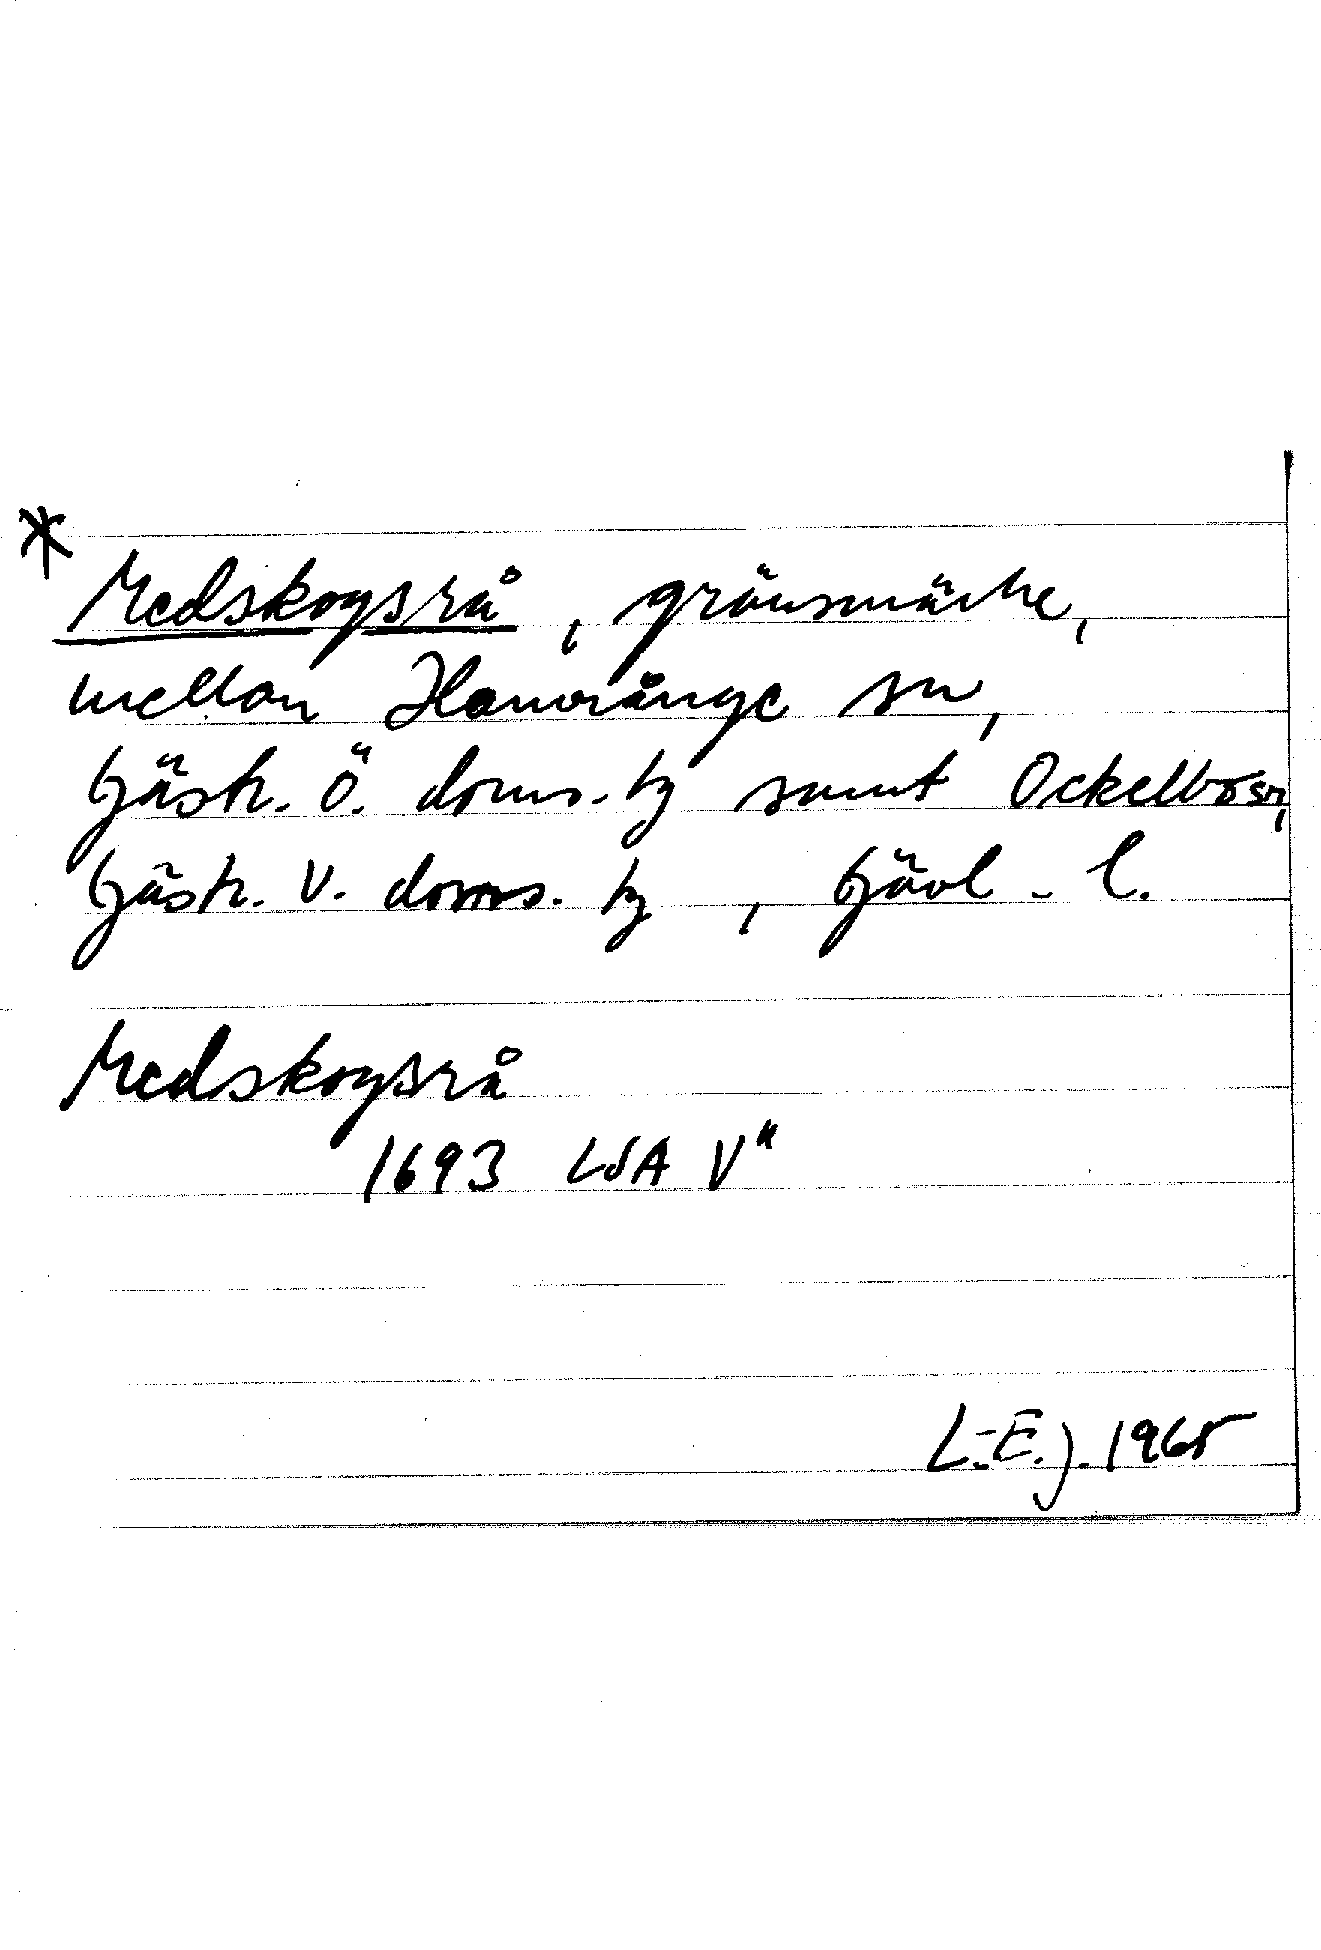 *
Medskogsrå, gränsmärke,
mellan Hamrånge sn,
Gästr. Ö. doms. tg samt Ockelbo sn,
Gästr. V. doms. tg, Gävl - l.
Medskogsrå
1693 LSA V"
L-E.J. 1965